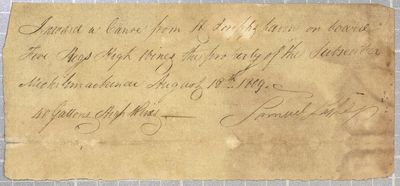 Inward a Canoe from St Josephs laven on board
Five Kegs High Wines the property of the Subscriber
Michilimackinac August 18th. 1809.
40 Gallons High Wines
Samuel